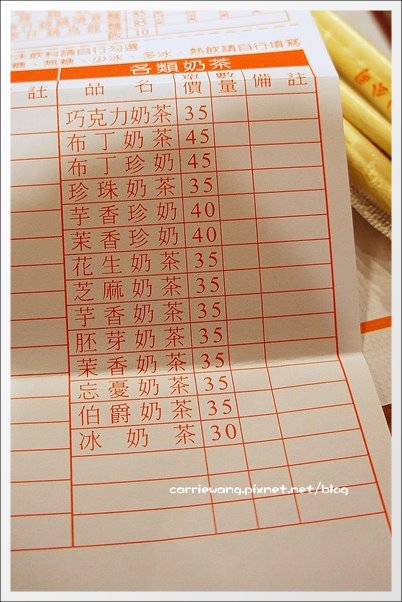 味飲料請自行勾選
糖、無糖、少冰、多冰、熱飲請自行填寫
各類奶茶
註 品名 單價 數量 備註
巧克力奶茶 35
布丁奶茶 45
布丁珍奶 45
珍珠奶茶 35
芋香珍奶 40
茉香珍奶 40
花生奶茶 35
芝麻奶茶 35
芋香奶茶 35
胚芽奶茶 35
茉香奶茶 35
忘憂奶茶 35
伯爵奶茶 35
冰奶茶 30
carriewang.pixnet.net/blog